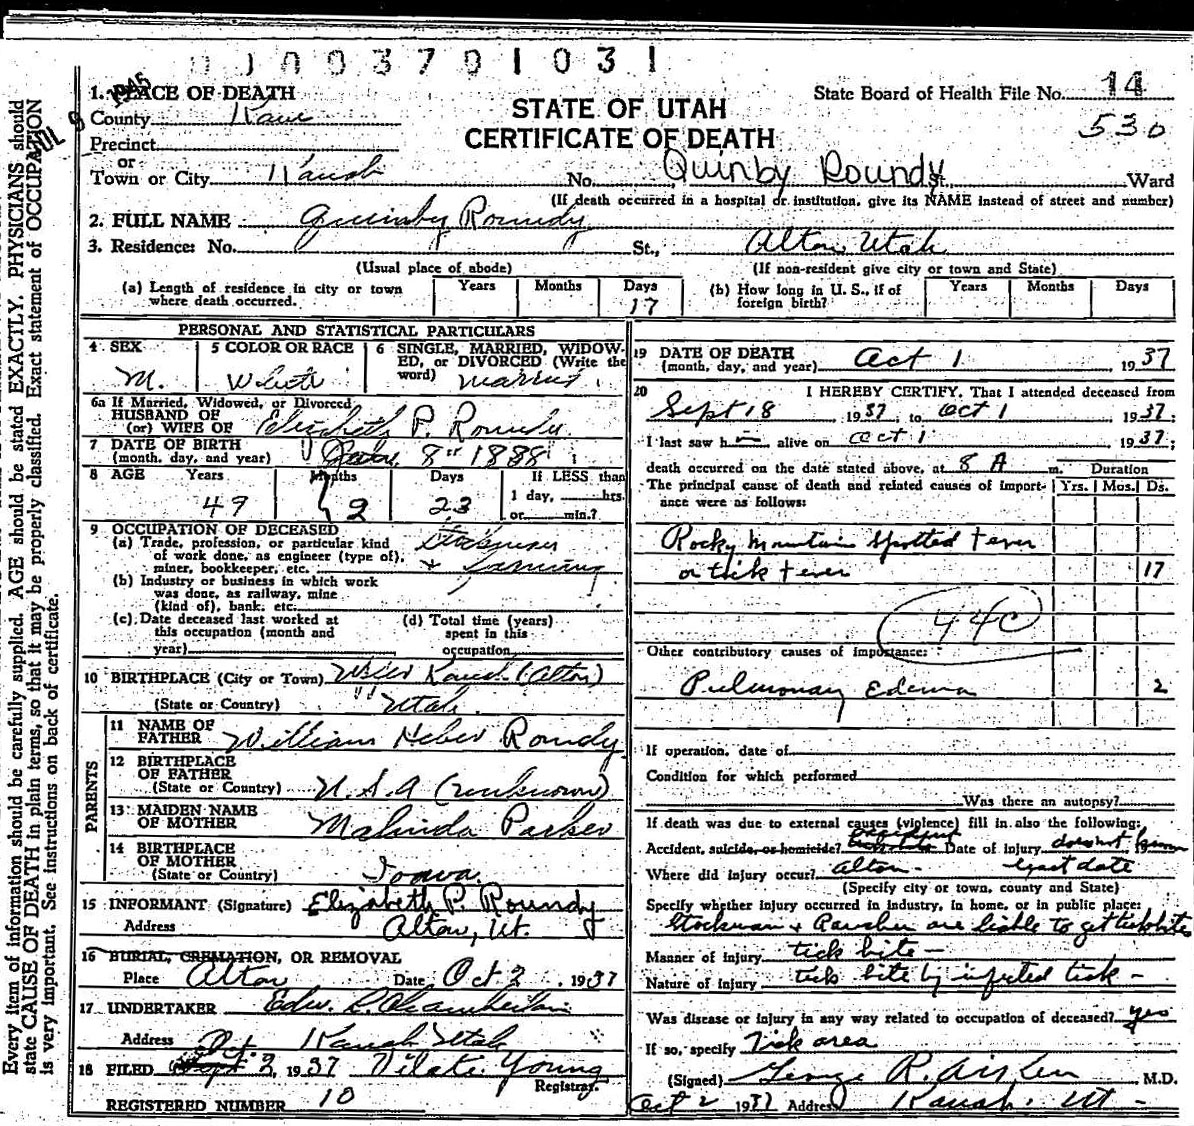 0 1 0 0 3 7 0 1 0 3 1
1. PLACE OF DEATH
State Board of Health File No. 14
530
STATE OF UTAH
CERTIFICATE OF DEATH
County Kane
Precinct
or
Town or City Kanab No. Quinby Roundy St. Ward
(If death occurred in a hospital or institution, give its NAME instead of street and number)
2. FULL NAME Quinby Roundy
3. Residence: No. St., Alton Utah
(Usual place of abode) (If non-resident give city or town and State)
(a) Length of residence in city or town where death occurred. Years Months Days 17
(b) How long in U. S., if of foreign birth? Years Months Days
PERSONAL AND STATISTICAL PARTICULARS
4 SEX M.
5 COLOR OR RACE White
6 SINGLE, MARRIED, WIDOWED, or DIVORCED (Write the word) married
6a If Married, Widowed, or Divorced
HUSBAND OF
(or) WIFE OF Elizabeth P. Roundy
7 DATE OF BIRTH
(month, day, and year) 8" 1888
8 AGE Years 49 Months 2 Days 23 If LESS than 1 day, hrs. or min.?
9 OCCUPATION OF DECEASED
(a) Trade, profession, or particular kind of work done, as engineer (type of), miner, bookkeeper, etc. + Farming
(b) Industry or business in which work was done, as railway, mine (kind of), bank, etc.
(c) Date deceased last worked at this occupation (month and year)
(d) Total time (years) spent in this occupation
10 BIRTHPLACE (City or Town) Kanab (Alton)
(State or Country) Utah.
PARENTS
11 NAME OF FATHER William Heber Roundy
12 BIRTHPLACE OF FATHER
(State or Country) U.S.A (unknown)
13 MAIDEN NAME OF MOTHER Malinda Parker
14 BIRTHPLACE OF MOTHER
(State or Country) Iowa.
15 INFORMANT (Signature) Elizabeth P. Roundy
Address Alton, Ut.
16 BURIAL, CREMATION, OR REMOVAL
Place Alton Date Oct 2 1937
17 UNDERTAKER Edw. L. Chamberlain
Address Kanab Utah
18 FILED Oct. 2, 1937 Vilate Young
Registrar.
REGISTERED NUMBER 10
19 DATE OF DEATH
(month, day, and year) Oct 1 1937
20 I HEREBY CERTIFY, That I attended deceased from
Sept 18 1937, to Oct 1 1937;
I last saw him alive on Oct 1 1937;
death occurred on the date stated above, at 8 A m. Duration
The principal cause of death and related causes of importance were as follows: Yrs. Mos. Ds.
Rocky Mountain Spotted Fever
or tick Fever 17
440
Other contributory causes of importance:
Pulmonary Edema 2
If operation, date of
Condition for which performed
Was there an autopsy?
If death was due to external causes (violence) fill in also the following:
Accident, suicide, or homicide? accident Date of injury does not know
Where did injury occur? Alton. exact date
(Specify city or town, county and State)
Specify whether injury occurred in industry, in home, or in public place:
Stockman + Rancher are liable to get tick bites
Manner of injury tick bite -
Nature of injury tick bite by infected tick -
Was disease or injury in any way related to occupation of deceased? yes
If so, specify Tick area
(Signed) George R. Aiken M.D.
Oct 2 1937 Address Kanab. Ut -
Every item of information should be carefully supplied. AGE should be stated EXACTLY. PHYSICIANS should
state CAUSE OF DEATH in plain terms, so that it may be properly classified. Exact statement of OCCUPATION
is very important. See instructions on back of certificate.